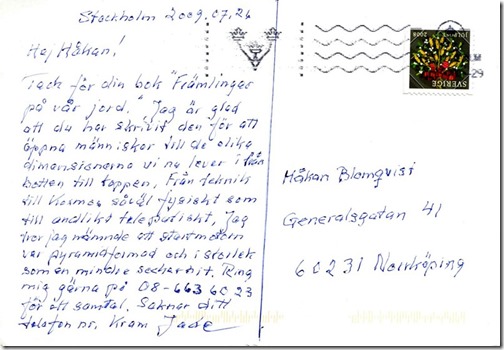 Stockholm 2009.07.26
Hej Håkan!
Tack för din bok "Främlingar
på vår jord." Jag är glad
att du har skrivit den för att
öppna människor till de olika
dimensionerna vi nu lever i från
botten till toppen. Från teknik
till Kosmos såväl fysiskt som
till andligt telepatiskt. Jag
tror jag nämnde att
var pyramidformad och i storlek
som en mindre Ring
mig gärna på 08-663 60 23
för ett samtal. Saknar ditt
telefon nr. Kram Jade
SVERIGE
2008
JULPOST
Håkan Blomqvist
Generalsgatan 41
60231 Norrköping